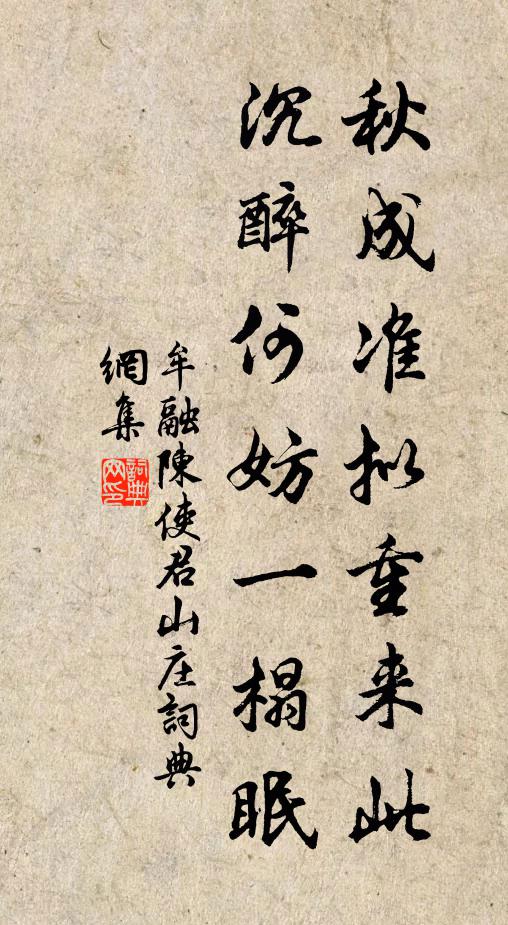 秋成准拟重来此
沉醉何妨一榻眠
牟融陳使君山庄詞典
網集
詞典網印